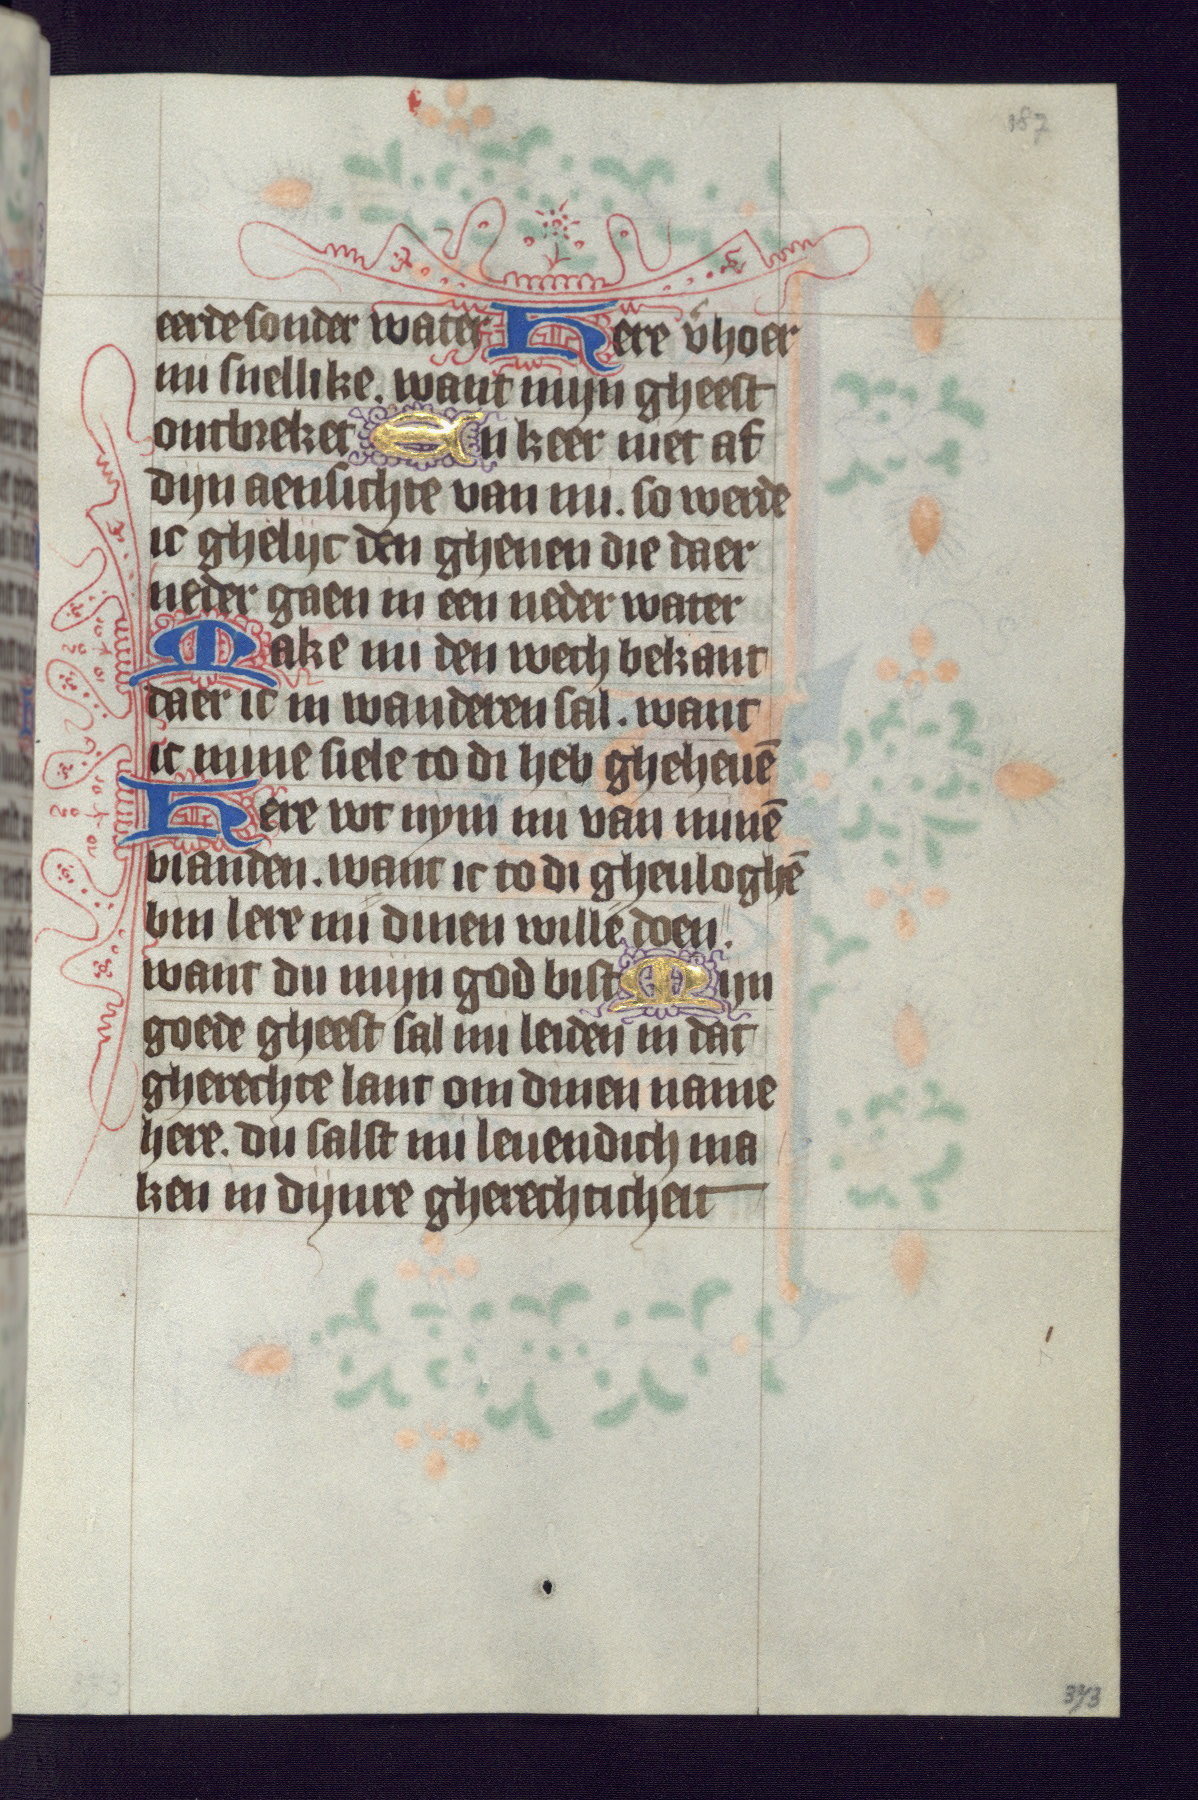 187
eerde sonder water Here v̄hoer
mi snellike. want mijn gheest
ontbreket En keer niet af
dijn aensichte van mi. so werde
ic ghelijc den ghenen die daer
neder gaen in een neder water
Make mi den wech bekant
daer ic in wanderen sal. want
ic mine siele to di heb gheheuē
Here wt nym mi van minē
vianden. want ic to di gheuloghē
bin lere mi dinen wille doen.
want du mijn god bist Dijn
goede gheest sal mi leiden in dat
gherechte lant om dinen name
here. du salst mi leuendich ma
ken in dijnre gherechticheit
373